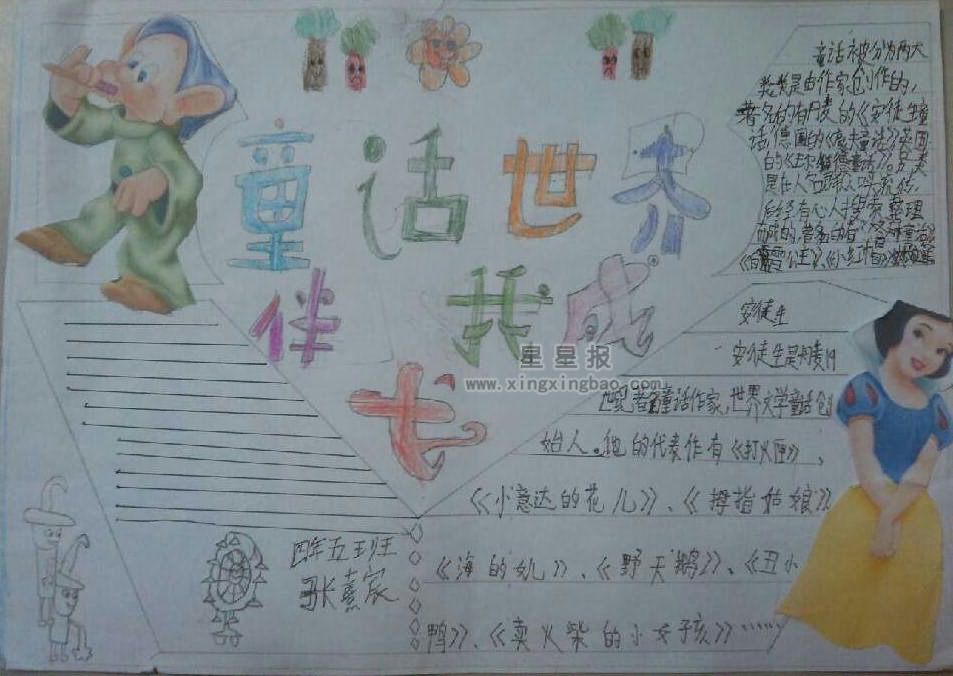 童话世界
伴我成
长
童话被分为两大
类类是由作家创作的,
著名的有丹麦的《安徒生童
话》德国的《
是在人名群众口头流传,
后经有心人搜集整理
而成的,著名的有
《白雪公主》、《小红帽》
安徒生
安徒生是丹麦19
世纪著名童话作家,世界文学童话创
始人。他的代表作有《打火匣》、
《小意达的花儿》、《拇指姑娘》
《海的女儿》、《野天鹅》、《丑小
鸭》、《卖火柴的小女孩》……
四年五班
张熹宸
星星报
www.xingxingbao.com